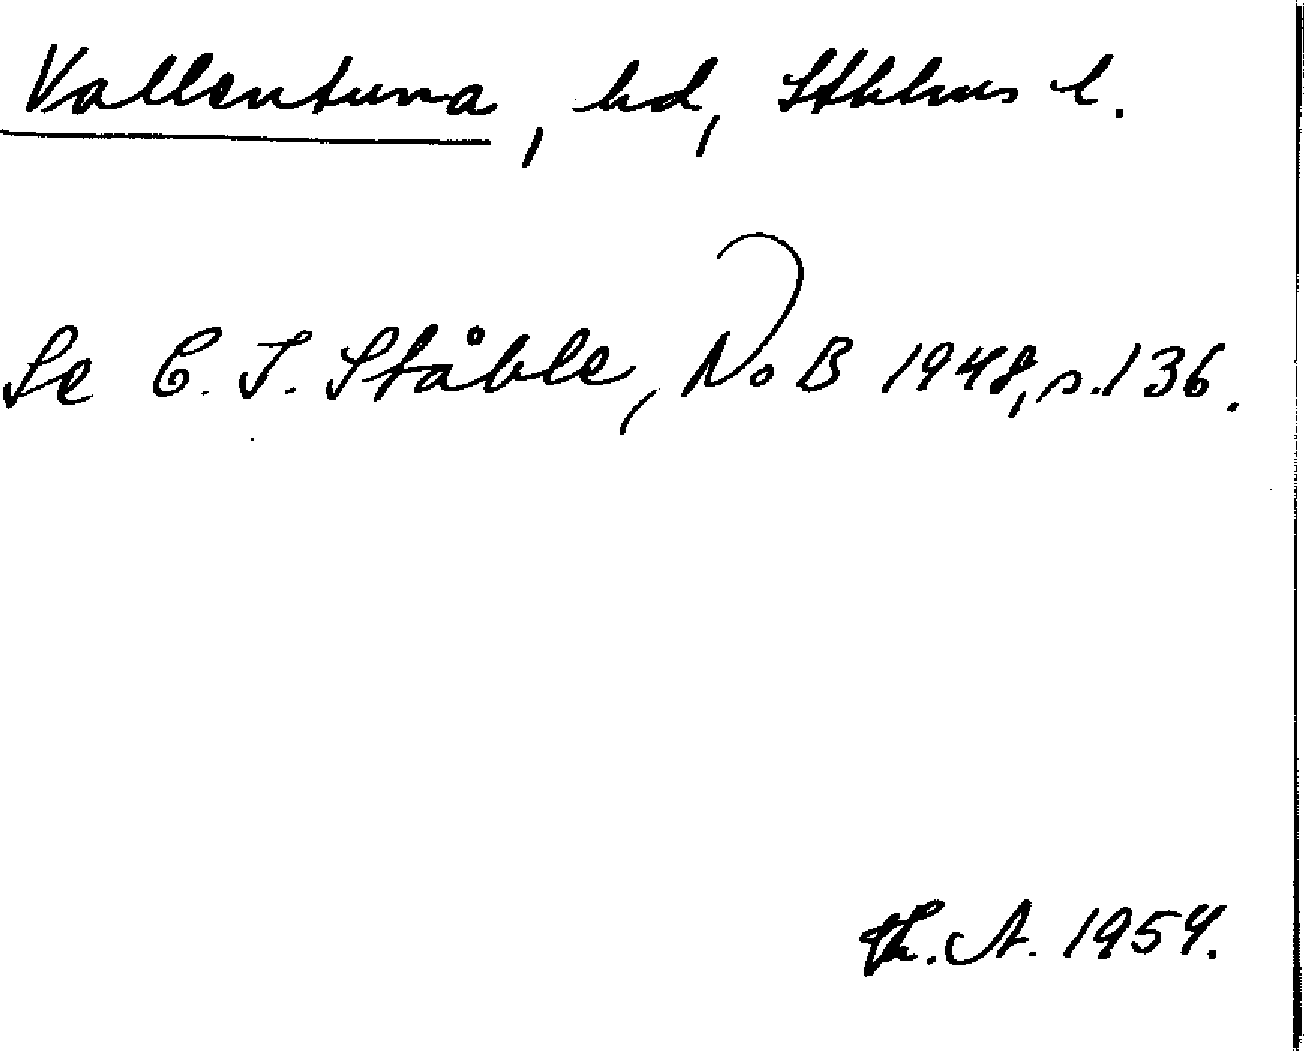 Vallentuna, hd, Sthlms l.
Se C. I. Ståhle, NoB 1948, s. 136.
Th. A. 1954.